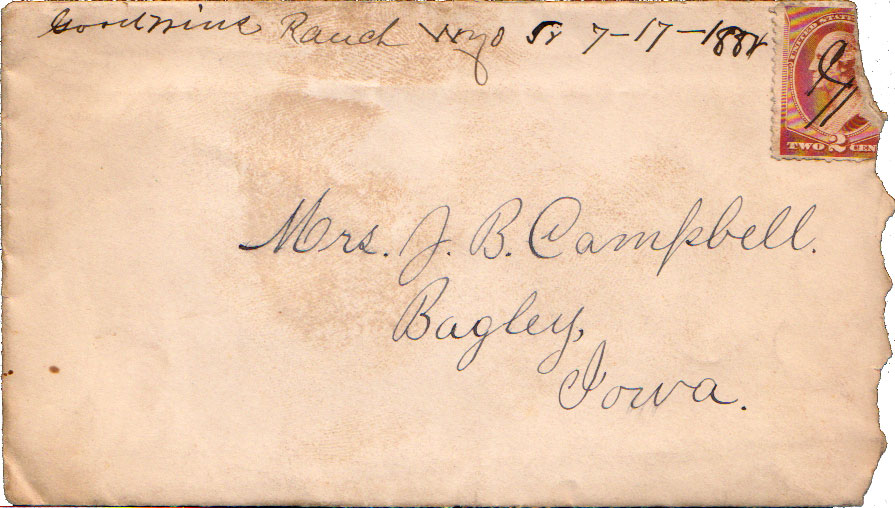 Goodwins Ranch Wyo Ty 7-17-1888
UNITED STATE
TWO 2 CEN
Mrs. J. B. Campbell.
Bagley,
Iowa.